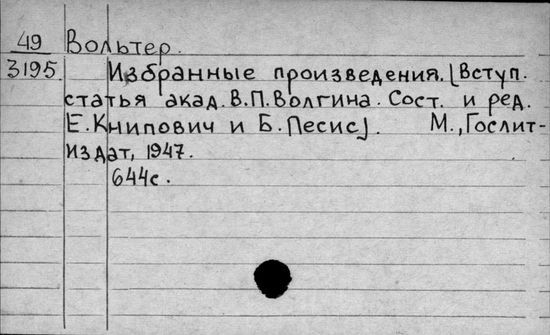 49 Вольтер.
3195. Избранные произведения. [Вступ.
статья акад. В.П. Волгина. Сост. и ред.
Е. Книпович и Б. Песис]. М., Гослит-
издат, 1947.
644с.